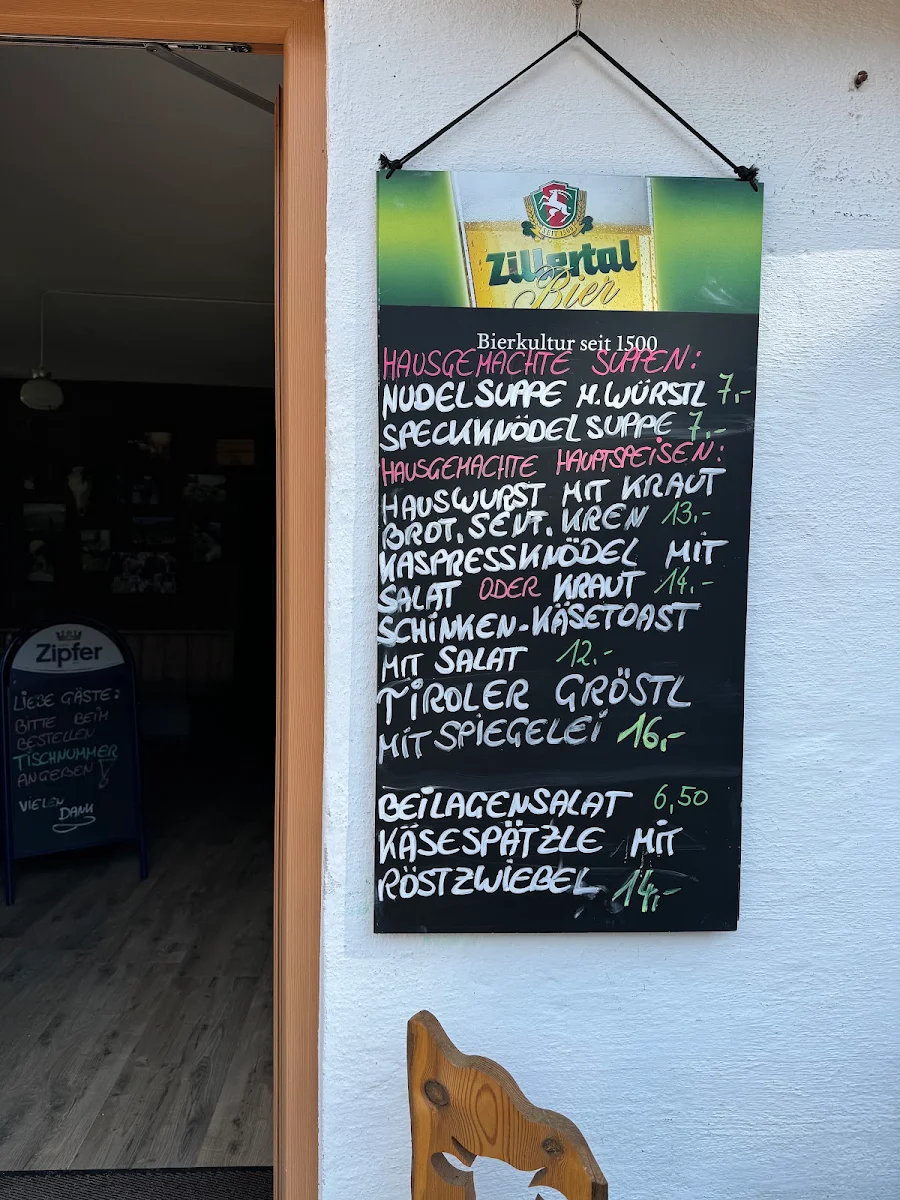 SEIT 1500
Zillertal
Bier
Bierkultur seit 1500
HAUSGEMACHTE SUPPEN:
NUDELSUPPE M. WÜRSTL 7,-
SPECKKNÖDELSUPPE 7,-
HAUSGEMACHTE HAUPTSPEISEN:
HAUSWURST MIT KRAUT
BROT, SENF, KREN 13,-
KASPRESSKNÖDEL MIT
SALAT ODER KRAUT 14,-
SCHINKEN-KÄSETOAST
MIT SALAT 12,-
TIROLER GRÖSTL
MIT SPIEGELEI 16,-
BEILAGENSALAT 6,50
KÄSESPÄTZLE MIT
RÖSTZWIEBEL 14,-
Zipfer
LIEBE GÄSTE:
BITTE BEIM
BESTELLEN
TISCHNUMMER
ANGEBEN!
VIELEN
DANK